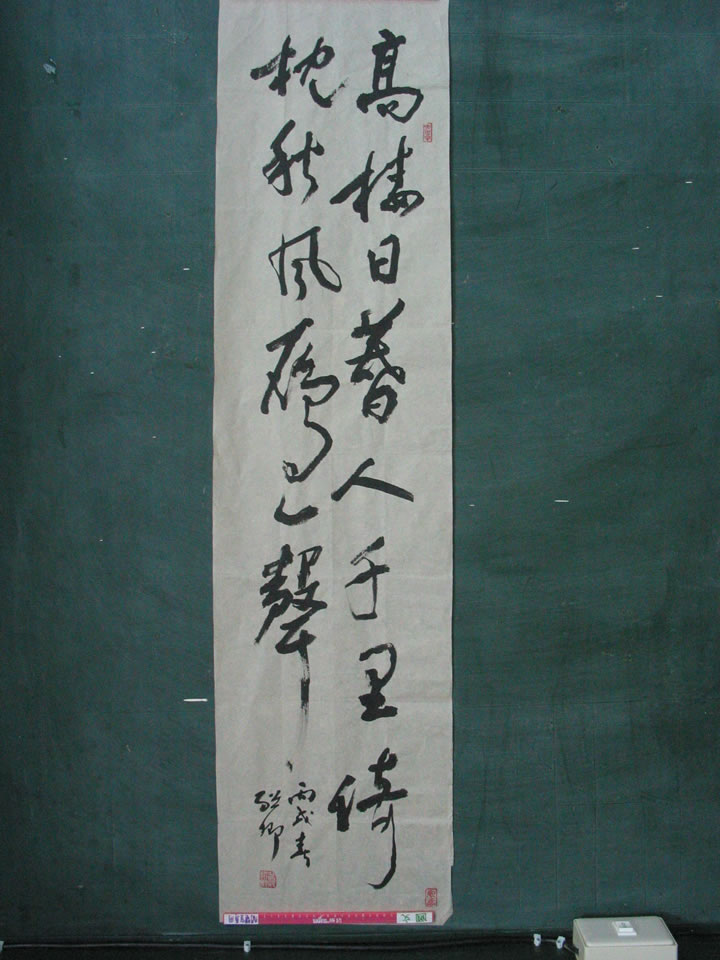 高樓日暮人千里倚
枕秋風雁已聲
丙戌春
文